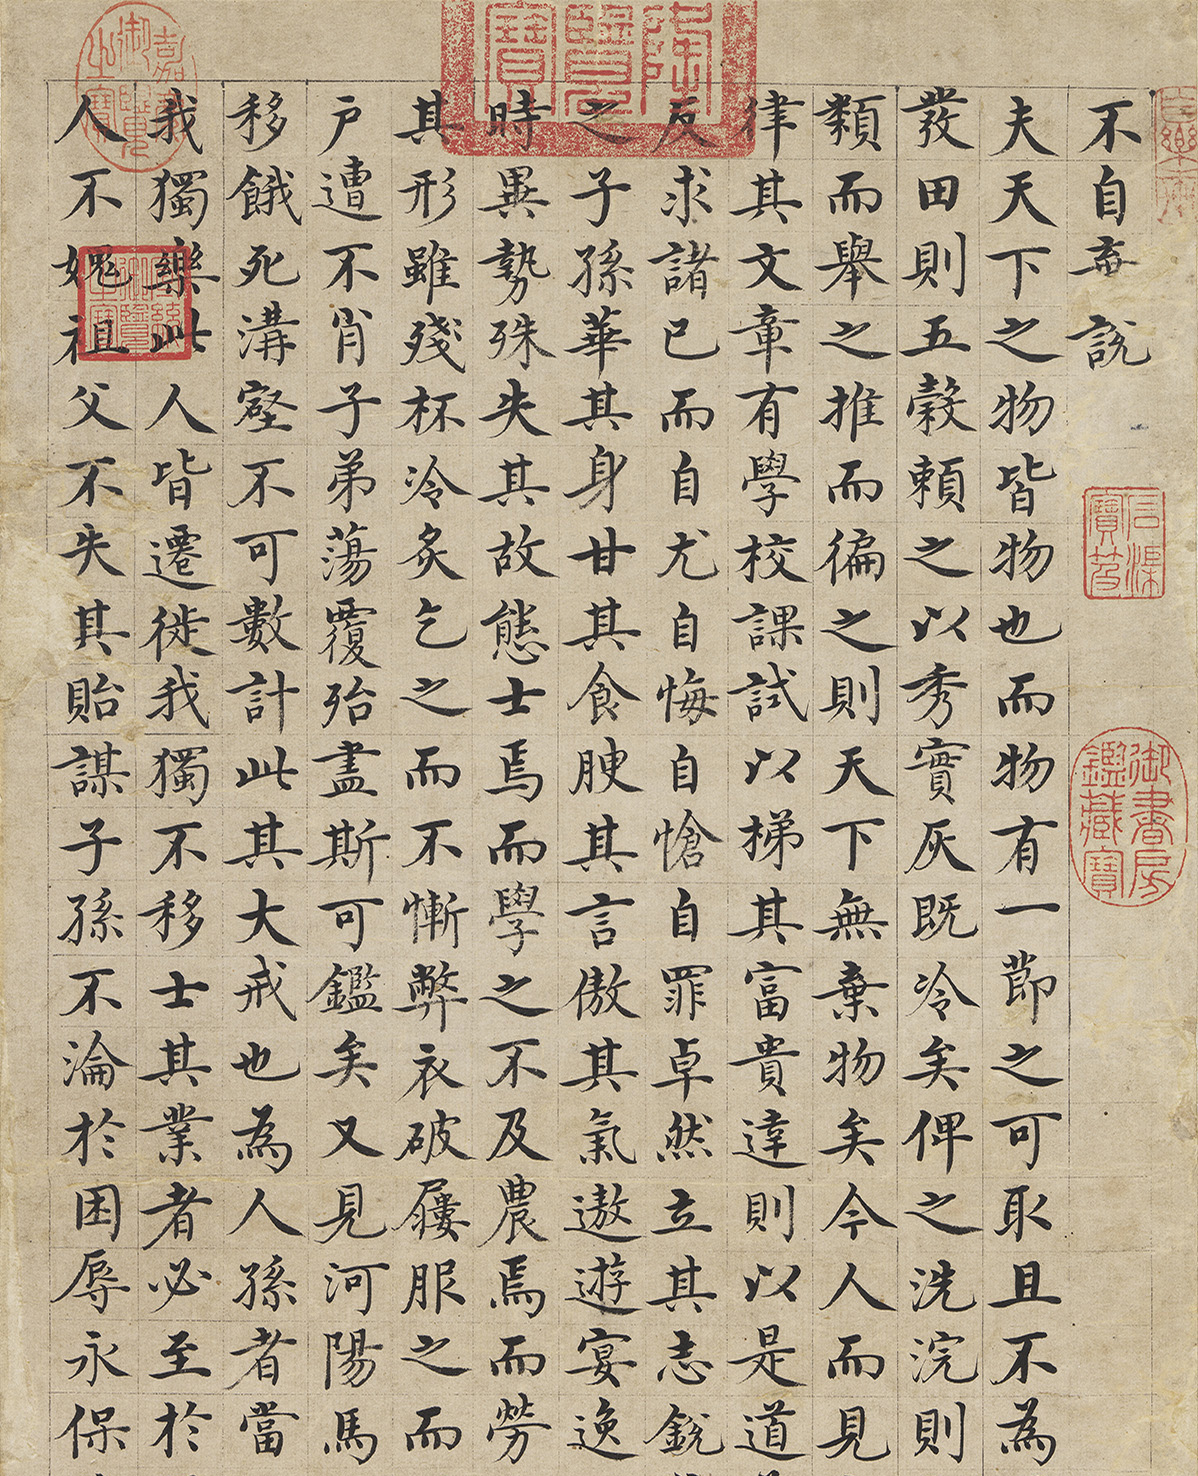 不自棄說
夫天下之物皆物也而物有一節之可取且不為
發田則五穀賴之以秀實灰既冷矣俾之洗浣則
類而舉之推而徧之則天下無棄物矣今人而見
律其文章有學校課試以梯其富貴達則以是道
反求諸已而自尤自悔自愴自罪卓然立其志銳
之子孫華其身甘其食腴其言傲其氣遨遊宴逸
時異勢殊失其故態士焉而學之不及農焉而勞
其形雖殘杯冷炙乞之而不慚弊衣破屨服之而
戶遭不肖子弟蕩覆殆盡斯可鑑矣又見河陽馬
移餓死溝壑不可數計此其大戒也為人孫者當
我獨樂此人皆遷徙我獨不移士其業者必至於
人不媿祖父不失其貽謀子孫不淪於困辱永保
信渠寶笈
御書房鑑藏寶
嘉慶御覽之寶